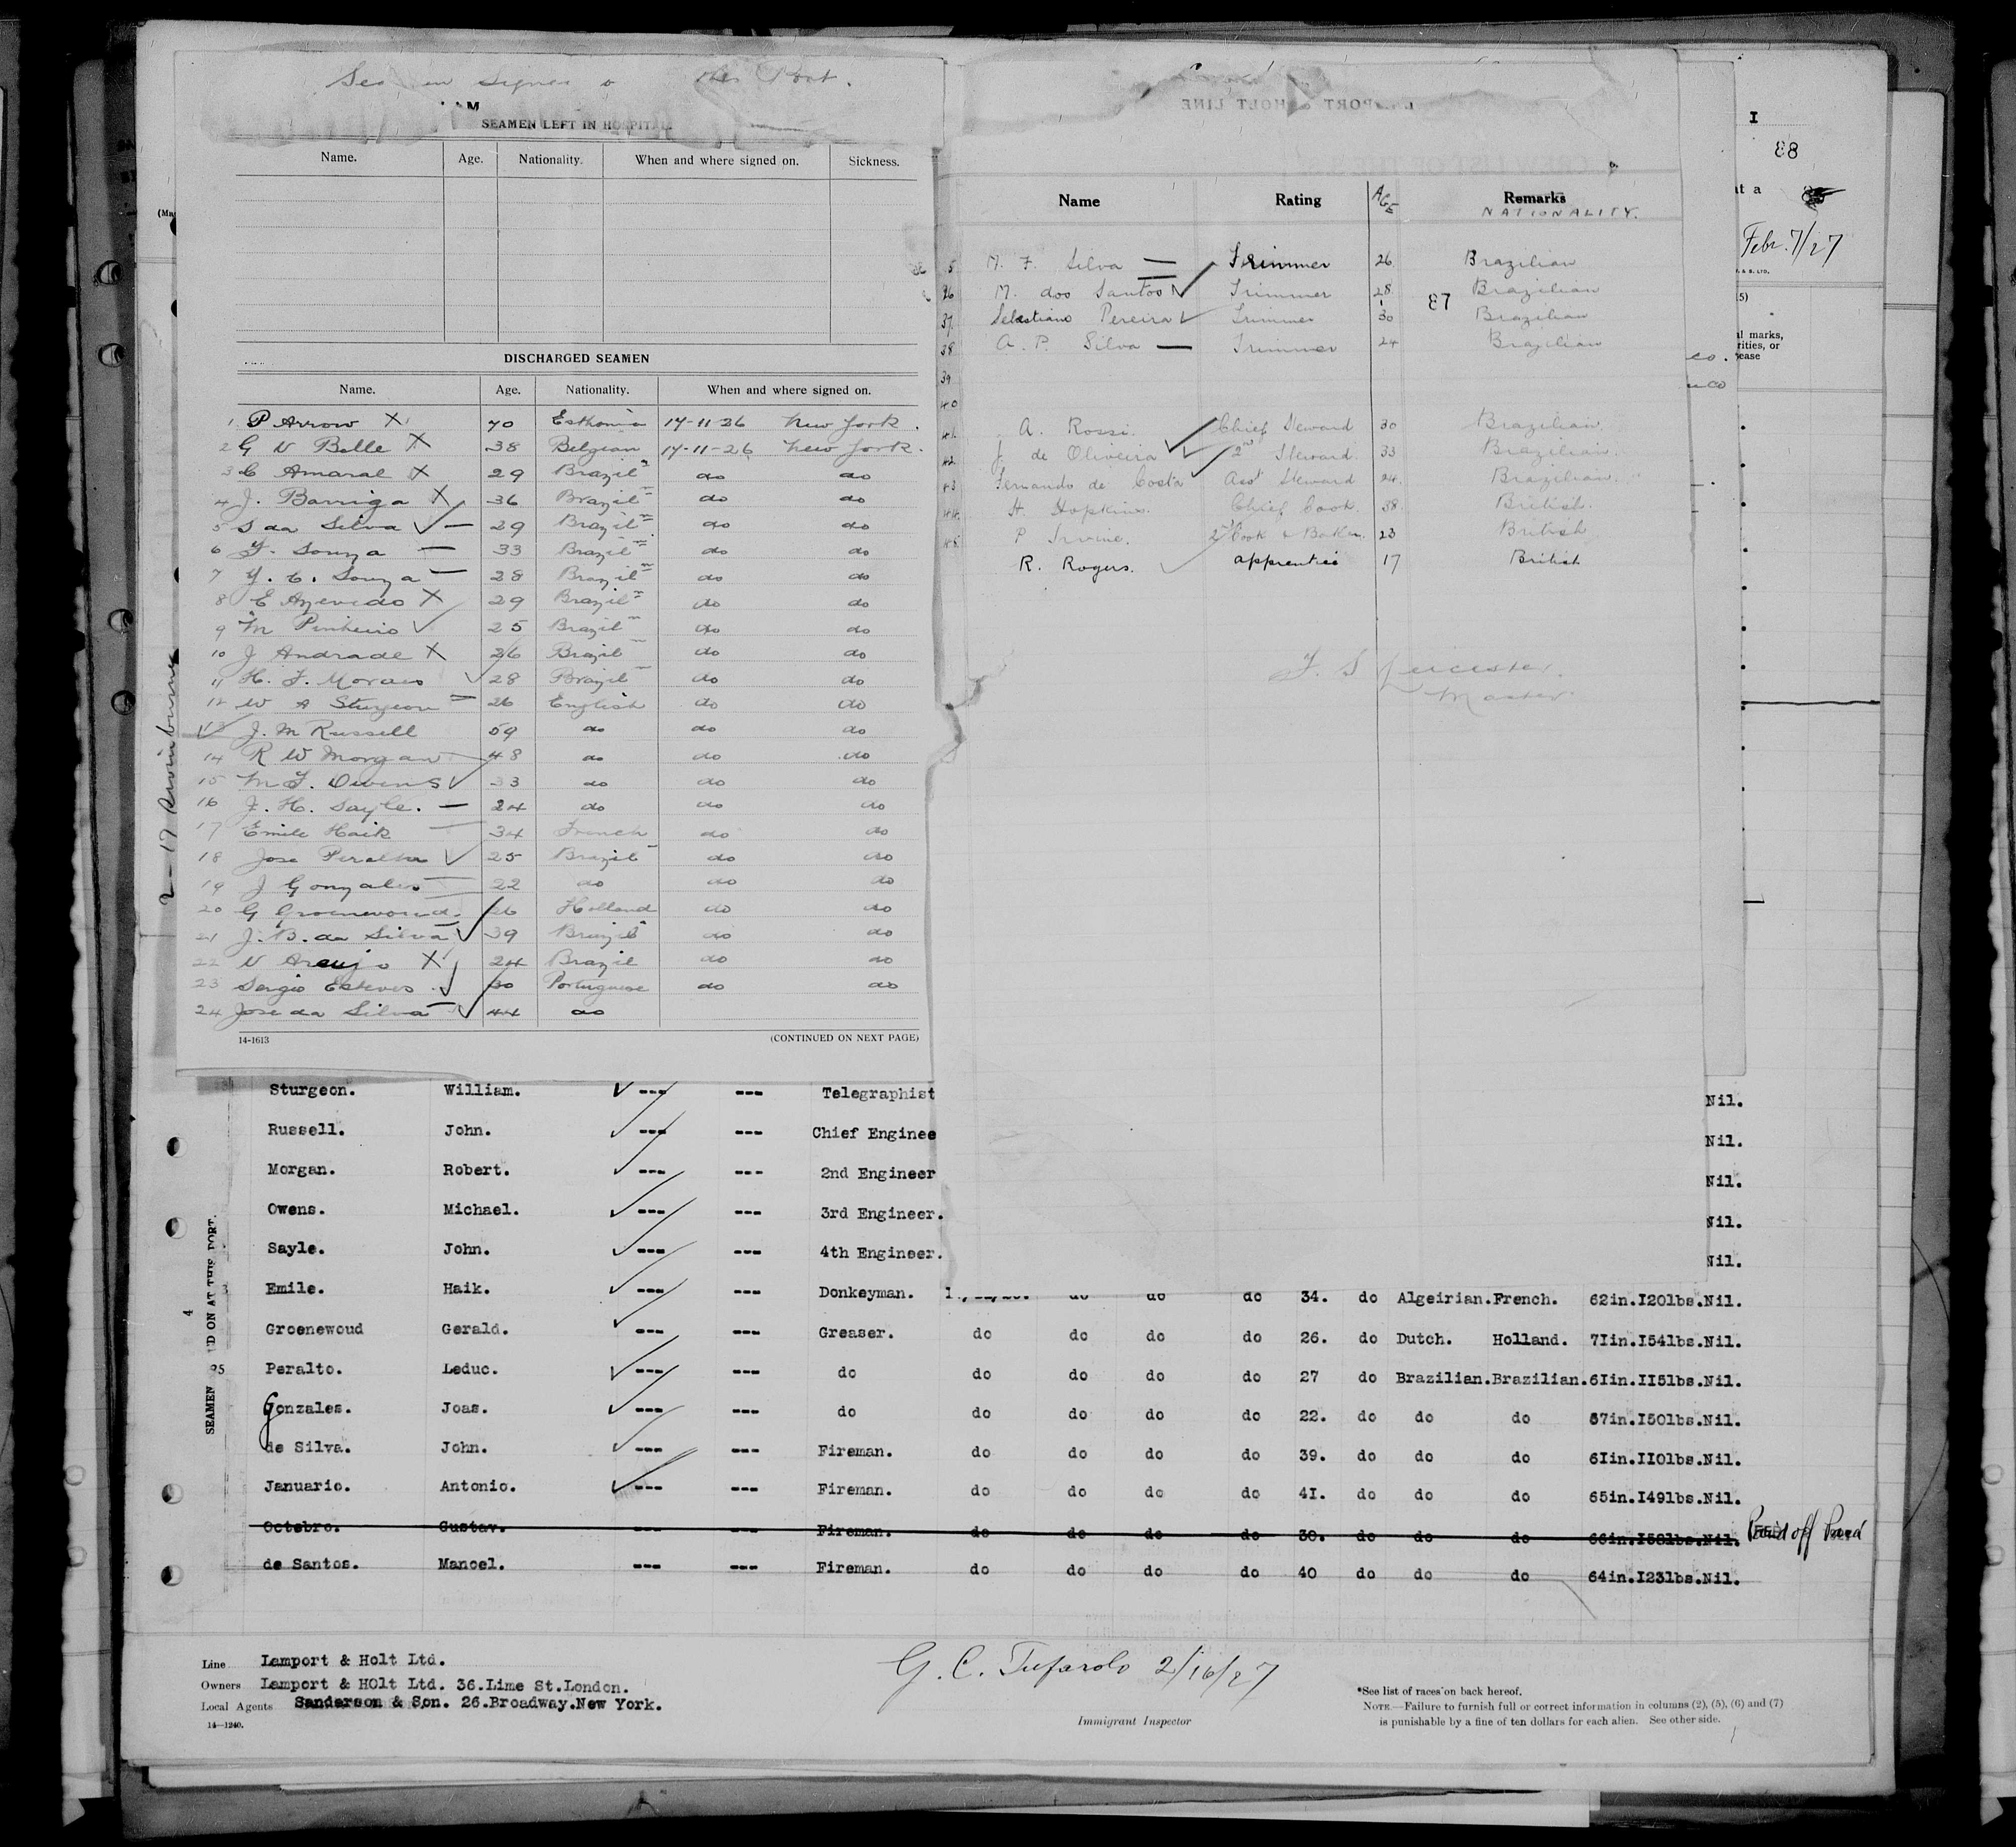 this Port.
SEAMEN LEFT IN HOSPITAL.
Name. Age. Nationality. When and where signed on. Sickness.
DISCHARGED SEAMEN
Name. Age. Nationality. When and where signed on.
1 P Arrow X 40 Esthonia 17-11-26 New York.
2 G V Belle X 38 Belgian 17-11-26 New York.
3 C Amaral X 29 Braziln do do
4 J. Barriga X 36 Braziln do do
5 S da Silva 29 Braziln do do
6 F. Souza — 33 Braziln do do
7 Y. C. Souza — 28 Braziln do do
8 E Azevedo X 29 Braziln do do
9 M Pinheiro 25 Braziln do do
10 J Andrade X 26 Braziln do do
11 H. F. Moraes 28 Brazil do do
12 W A Sturgeon 26 English do do
13 J. M Russell 59 do do do
14 R W Morgan 48 do do do
15 M F. Owens 33 do do do
16 J. H. Sayle. — 24 do do do
17 Emile Haik 34 French do do
18 Jose Peralta 25 Brazil do do
19 J Gonzales 22 do do do
20 G Groenewoud. 26 Holland do do
21 J. B. da Silva 39 Brazil do do
22 V Araujo X 24 Brazil do do
23 Sergio Esteves 30 Portuguese do do
24 Jose da Silva 44 do
14-1613 (CONTINUED ON NEXT PAGE)
LAMPORT & HOLT LINE
Name Rating AGE Remarks
NATIONALITY.
5 M. F. Silva — Trimmer 26 Brazilian
36 M. dos Santos Trimmer 28 Brazilian
87
37 Sebastiano Pereira Trimmer 30 Brazilian
38 A. P. Silva — Trimmer 24 Brazilian
39
40
41 A. Rossi. Chief Steward 30 Brazilian.
42 J. de Oliveira 2nd Steward. 33 Brazilian.
43 Fernando de Costa Asst Steward 24. Brazilian.
44 H. Hopkins. Chief Cook. 38. British.
45 P Irvine. 2nd Cook & Baker. 23 British
R. Rogers. apprentice 17 British
F. S Leicester.
Master
I
88
at a
Febr. 7/27
& S. LTD.
5)
al marks,
rities, or
ease
co.
uco
SEAMEN 'D ON AT THIS PORT.
4
Sturgeon. William. --- --- Telegraphist Nil.
Russell. John. --- --- Chief Enginee Nil.
Morgan. Robert. --- --- 2nd Engineer Nil.
Owens. Michael. --- --- 3rd Engineer. Nil.
Sayle. John. --- --- 4th Engineer. Nil.
Emile. Haik. --- --- Donkeyman. do do do 34. do Algeirian.French. 62in.I20lbs.Nil.
Groenewoud Gerald. --- --- Greaser. do do do do 26. do Dutch. Holland. 7Iin.I54lbs.Nil.
Peralto. Leduc. --- --- do do do do do 27 do Brazilian.Brazilian.6Iin.II5lbs.Nil.
Gonzales. Joas. --- --- do do do do do 22. do do do 67in.I50lbs.Nil.
de Silva. John. --- --- Fireman. do do do do 39. do do do 6Iin.II0lbs.Nil.
Januario. Antonio. --- --- Fireman. do do do do 4I. do do do 65in.I49lbs.Nil.
Octobro. Gustav. --- --- Fireman. do do do do 30. do do do 66in.I58lbs.Nil. Paid off Para
de Santos. Manoel. --- --- Fireman. do do do do 40 do do do 64in.I23lbs.Nil.
Line Lamport & Holt Ltd.
Owners Lamport & HOlt Ltd. 36.Lime St.London.
Local Agents Sanderson & Son. 26.Broadway.New York.
14—1240.
G. C. Tufarolo 2/16/27
Immigrant Inspector
*See list of races on back hereof.
NOTE.—Failure to furnish full or correct information in columns (2), (5), (6) and (7)
is punishable by a fine of ten dollars for each alien. See other side.